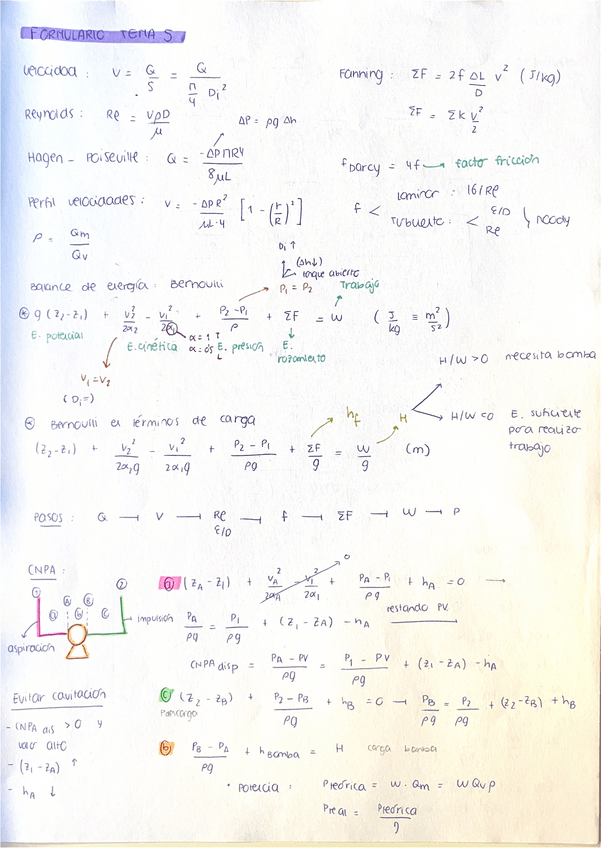 FORMULARIO TEMA 5
Velocidad : V = Q/S = Q/(π/4 Di²)
Fanning : ΣF = 2f ΔL/D v² (J/kg)
ΣF = Σk v²/2
Reynolds : Re = VρD/μ
ΔP = ρg Δh
Hagen - Poiseville : Q = -ΔPπR⁴/8μL
fDarcy = 4f → facto fricción
Perfil velocidades : V = -ΔPR²/μL·4 [1 - (r/R)²]
f < Laminar : 16/Re
Turbulento : < ε/D Re } Moody
ρ = Qm/Qv
Di ↑
(Δh↓) tanque abierto
Balance de energía : Bernouilli
P₁ = P₂
Trabajo
* g (z₂-z₁) + v₂²/2α₂ - v₁²/2α₁ + P₂-P₁/ρ + ΣF = W (J/kg ≡ m²/s²)
E. potencial
E. cinética
α = 1 T
α = 0'5 L
E. presión
E. rozamiento
V₁ = V₂
(Di =)
H/W > 0 necesita bomba
H/W = 0 E. suficiente para realizar trabajo
* Bernouilli en términos de carga
hf
H
(z₂-z₁) + v₂²/2α₂g - v₁²/2α₁g + P₂-P₁/ρg + ΣF/g = W/g (m)
PASOS : Q → V → Re ε/D → f → ΣF → W → P
CNPA :
① ② A B a b c
aspiración
impulsión
a (zA - z₁) + vA²/2αA - v₁²/2α₁ + PA - P₁/ρg + hA = 0 →
0
PA/ρg = P₁/ρg + (z₁ - zA) - hA
restando PV
CNPA disp = PA - PV/ρg = P₁ - PV/ρg + (z₁ - zA) - hA
Evitar cavitación
- CNPA dis > 0 y
valor alto
- (z₁ - zA) ↑
- hA ↓
c (z₂ - zB) + P₂ - PB/ρg + hB = 0 → PB/ρg = P₂/ρg + (z₂ - zB) + hB
b PB - PA/ρg + hBomba = H carga bomba
• Potencia : Pteórica = W · Qm = W Qv ρ
Preal = Pteórica/η